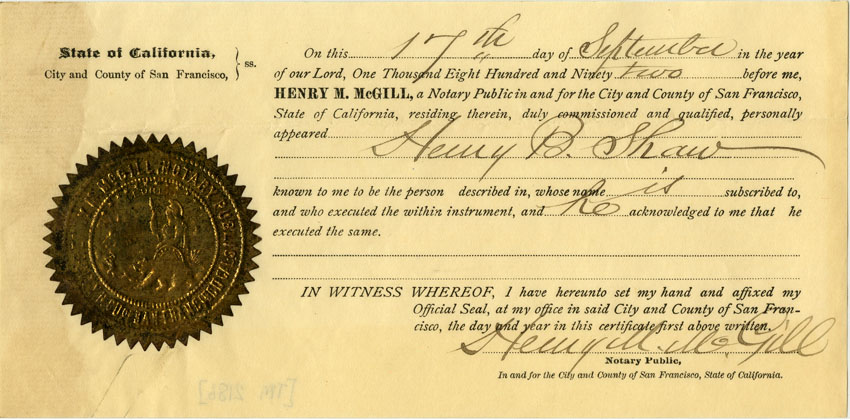 State of California,
City and County of San Francisco, } ss.
On this 17th day of September in the year
of our Lord, One Thousand Eight Hundred and Ninety two before me,
HENRY M. McGILL, a Notary Public in and for the City and County of San Francisco,
State of California, residing therein, duly commissioned and qualified, personally
appeared Henry B. Shaw
known to me to be the person described in, whose name is subscribed to,
and who executed the within instrument, and he acknowledged to me that he
executed the same.
IN WITNESS WHEREOF, I have hereunto set my hand and affixed my
Official Seal, at my office in said City and County of San Fran-
cisco, the day and year in this certificate first above written.
Henry M. McGill
Notary Public,
In and for the City and County of San Francisco, State of California.
McGILL, NOTARY PUBLIC
[TM 2186]